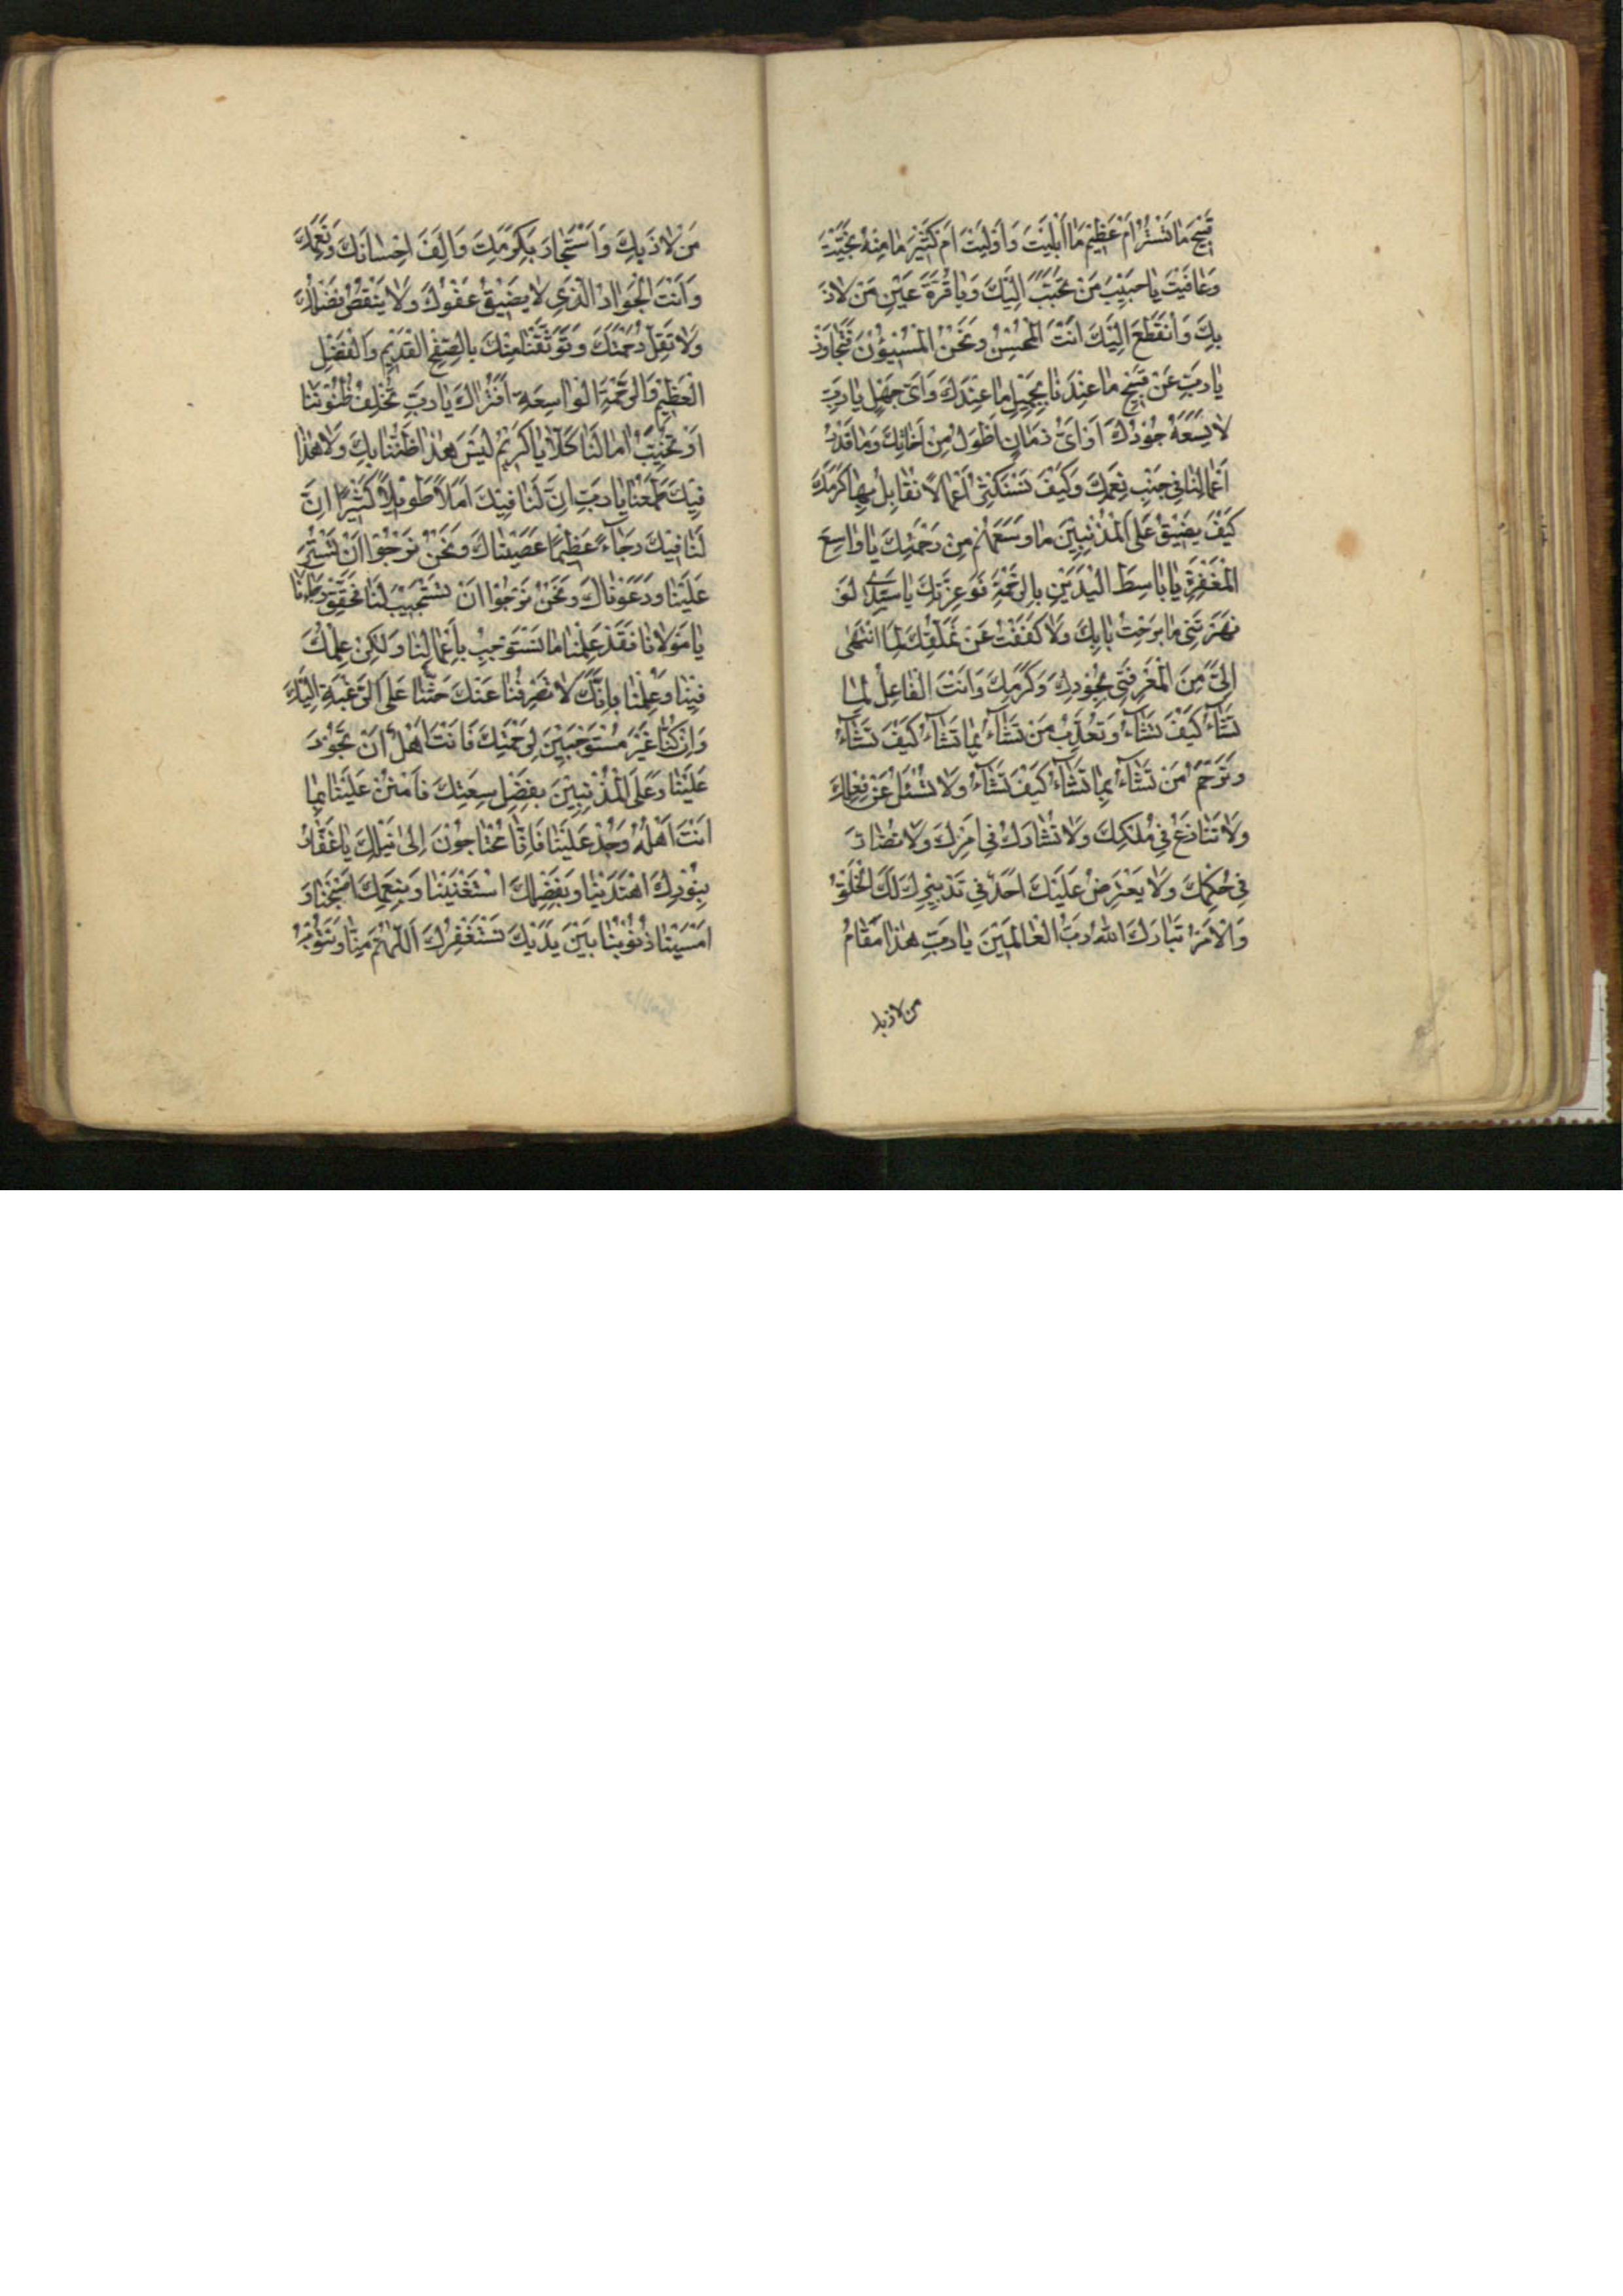 قَبِيحَ مَا تَسْتُرُ اَمْ عَظِيمَ مَا اَبْلَيْتَ وَاَوْلَيْتَ اَمْ كَثِيرَ مَا مِنْهُ نَجَّيْتَ
وَعَافَيْتَ يَا حَبِيبَ مَنْ تَحَبَّبَ اِلَيْكَ وَيَا قُرَّةَ عَيْنِ مَنْ لَاذَ
بِكَ وَانْقَطَعَ اِلَيْكَ اَنْتَ الْمُحْسِنُ وَنَحْنُ الْمُسِيئُونَ فَتَجَاوَزْ
يَا رَبِّ عَنْ قَبِيحِ مَا عِنْدَنَا بِجَمِيلِ مَا عِنْدَكَ وَاَىُّ جَهْلٍ يَا رَبِّ
لَا يَسَعُهُ جُودُكَ اَوْ اَىُّ زَمَانٍ اَطْوَلُ مِنْ اَنَاتِكَ وَمَا قَدْرُ
اَعْمَالِنَا فِى جَنْبِ نِعَمِكَ وَكَيْفَ نَسْتَكْثِرُ اَعْمَالًا نُقَابِلُ بِهَا كَرَمَكَ
كَيْفَ يَضِيقُ عَلَى الْمُذْنِبِينَ مَا وَسِعَهُمْ مِنْ رَحْمَتِكَ يَا وَاسِعَ
الْمَغْفِرَةِ يَا بَاسِطَ الْيَدَيْنِ بِالرَّحْمَةِ فَوَعِزَّتِكَ يَا سَيِّدِى لَوْ
نَهَرْتَنِى مَا بَرِحْتُ بَابِكَ وَلَا كَفَفْتُ عَنْ تَمَلُّقِكَ لِمَا انْتَهَى
اِلَىَّ مِنَ الْمَعْرِفَتِى بِجُودِكَ وَكَرَمِكَ وَاَنْتَ الْفَاعِلُ لِمَا
تَشَاءُ كَيْفَ تَشَاءُ وَتُعَذِّبُ مَنْ تَشَاءُ بِمَا تَشَاءُ كَيْفَ تَشَاءُ
وَتَرْحَمُ مَنْ تَشَاءُ بِمَا تَشَاءُ كَيْفَ تَشَاءُ وَلَا تُسْئَلُ عَنْ فِعْلِكَ
وَلَا تُنَازَعُ فِى مُلْكِكَ وَلَا تُشَارَكُ فِى اَمْرِكَ وَلَا تُضَادَّ
فِى حُكْمِكَ وَلَا يَعْتَرِضُ عَلَيْكَ اَحَدٌ فِى تَدْبِيرِكَ لَكَ الْخَلْقُ
وَالْاَمْرُ تَبَارَكَ اللهُ رَبُّ الْعَالَمِينَ يَا رَبِّ هٰذَا مَقَامُ
من لاذ بك
مَنْ لَاذَ بِكَ وَاسْتَجَارَ بِكَرَمِكَ وَاَلِفَ اِحْسَانَكَ وَنِعَمَكَ
وَاَنْتَ الْجَوَادُ الَّذِى لَا يَضِيقُ عَفْوُكَ وَلَا يَنْقُصُ فَضْلُكَ
وَلَا تَقِلُّ رَحْمَتُكَ وَتَوَثَّقْنَا مِنْكَ بِالصَّفْحِ الْقَدِيمِ وَالْفَضْلِ
الْعَظِيمِ وَالرَّحْمَةِ الْوَاسِعَةِ اَفَتُرَاكَ يَا رَبِّ تُخْلِفُ ظُنُونَنَا
اَوْ تُخَيِّبُ اٰمَالَنَا كَلَّا يَا كَرِيمُ لَيْسَ هٰذَا ظَنُّنَا بِكَ وَلَا هٰذَا
فِيكَ طَمَعُنَا يَا رَبِّ اِنَّ لَنَا فِيكَ اَمَلًا طَوِيلًا كَثِيرًا اِنَّ
لَنَا فِيكَ رَجَاءً عَظِيمًا عَصَيْنَاكَ وَنَحْنُ نَرْجُوا اَنْ تَسْتُرَ
عَلَيْنَا وَدَعَوْنَاكَ وَنَحْنُ نَرْجُوا اَنْ تَسْتَجِيبَ لَنَا فَحَقِّقْ رَجَاءَنَا
يَا مَوْلَانَا فَقَدْ عَلِمْنَا مَا نَسْتَوْجِبُ بِاَعْمَالِنَا وَلٰكِنْ عِلْمُكَ
فِينَا وَعِلْمُنَا بِاَنَّكَ لَا تَصْرِفُنَا عَنْكَ حَثَّنَا عَلَى الرَّغْبَةِ اِلَيْكَ
وَاِنْ كُنَّا غَيْرَ مُسْتَوْجِبِينَ لِرَحْمَتِكَ فَاَنْتَ اَهْلٌ اَنْ تَجُودَ
عَلَيْنَا وَعَلَى الْمُذْنِبِينَ بِفَضْلِ سِعَتِكَ فَامْنُنْ عَلَيْنَا بِمَا
اَنْتَ اَهْلُهُ وَجُدْ عَلَيْنَا فَاِنَّا مُحْتَاجُونَ اِلَى نَيْلِكَ يَا غَفَّارُ
بِنُورِكَ اهْتَدَيْنَا وَبِفَضْلِكَ اسْتَغْنَيْنَا وَبِنِعَمِكَ اَصْبَحْنَا وَ
اَمْسَيْنَا ذُنُوبُنَا بَيْنَ يَدَيْكَ نَسْتَغْفِرُكَ اَللّٰهُمَّ مِنَّا وَنَتُوبُ